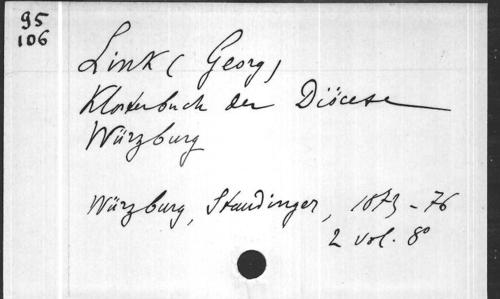 95
106
Link (Georg)
Klosterbuch der Diöcese
Würzburg
Würzburg, Staudinger, 1873-76
2 vol. 8°